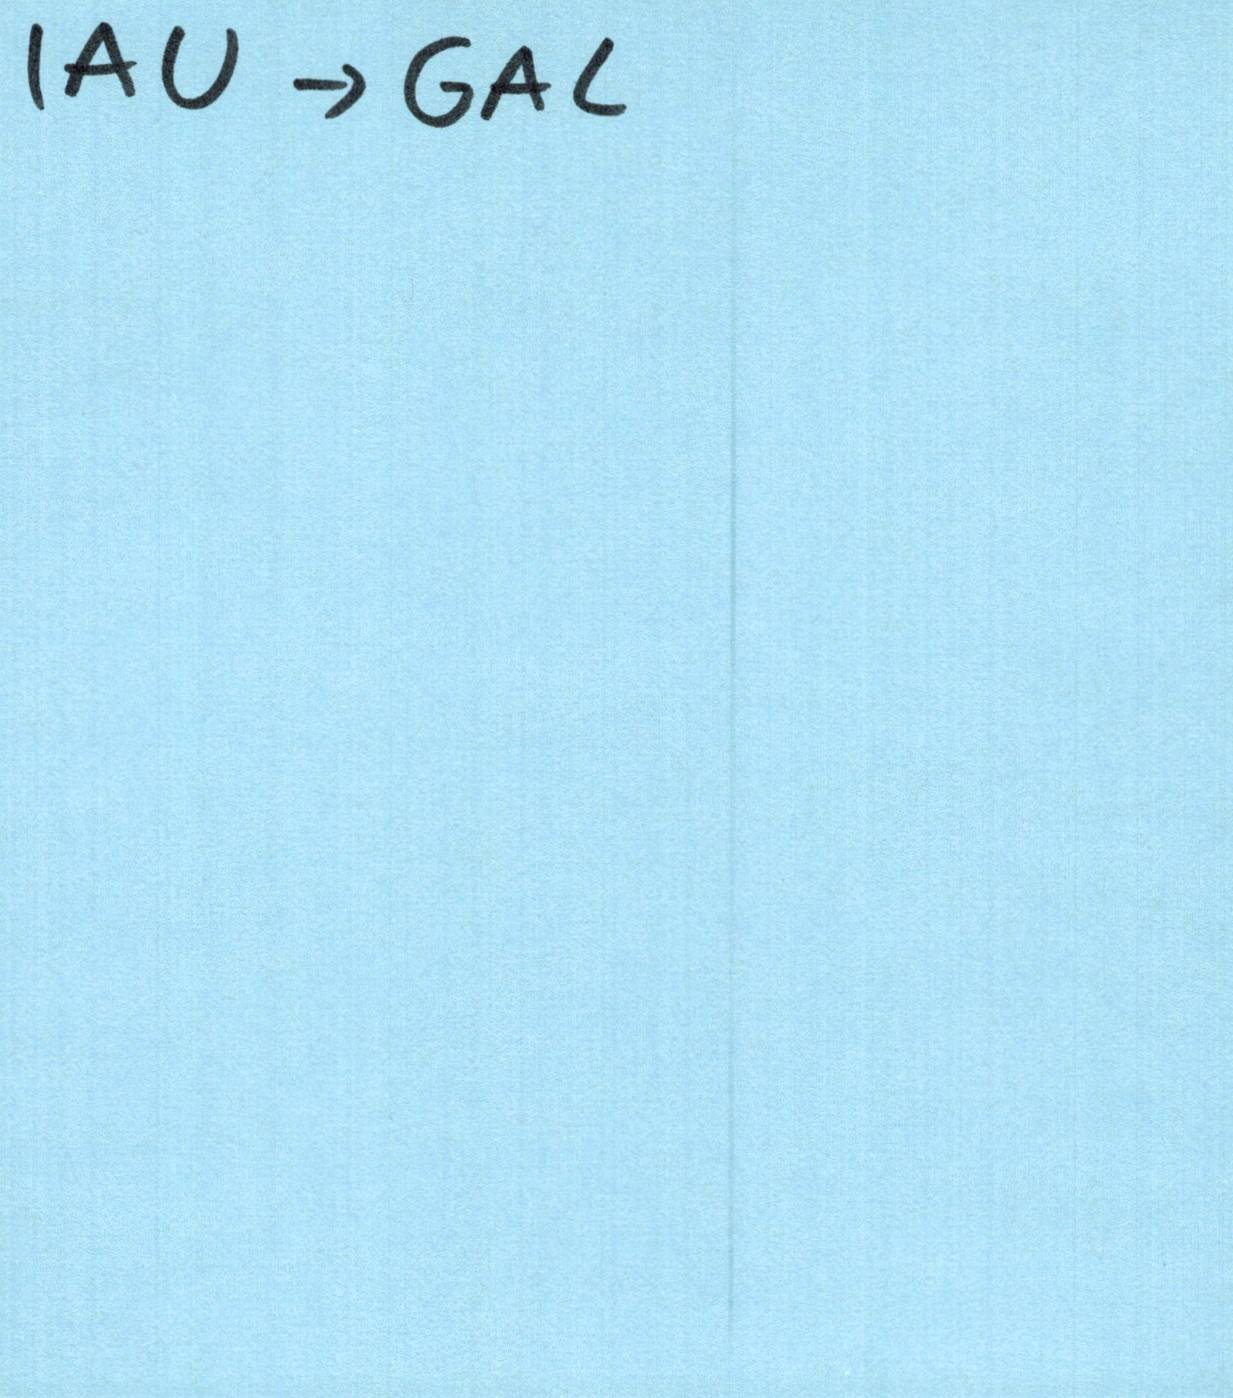 IAU → GAL